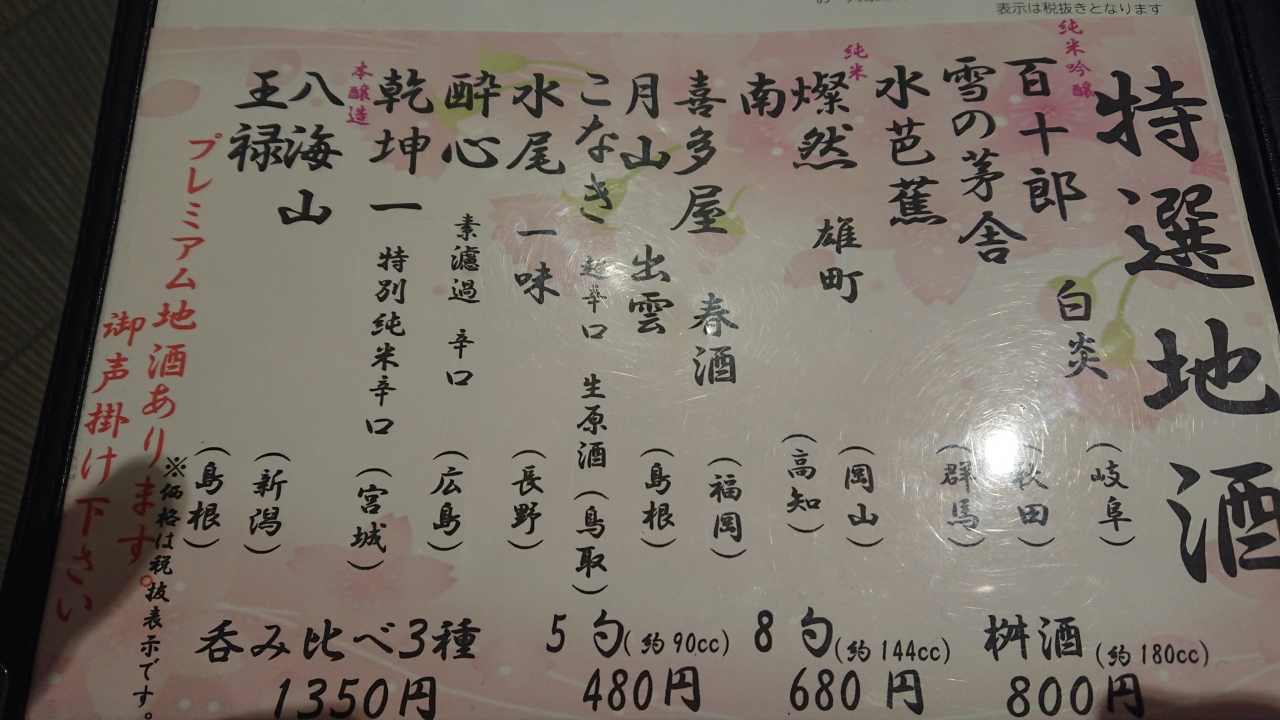 表示は税抜きとなります
特選地酒
純米吟醸
百十郎 白炎 (岐阜)
雪の茅舎 (秋田)
水芭蕉 (群馬)
純米
燦然 雄町 (岡山)
南 (高知)
喜多屋 春酒 (福岡)
月山 出雲 (島根)
こなき 超辛口 生原酒 (鳥取)
水尾 一味 (長野)
酔心 素濾過 辛口 (広島)
乾坤一 特別純米辛口 (宮城)
本醸造
八海山 (新潟)
王禄 (島根)
プレミアム地酒あります。
御声掛け下さい
※価格は税抜表示です。
桝酒(約180cc)
800円
8勺(約144cc)
680円
5勺(約90cc)
480円
呑み比べ3種
1350円